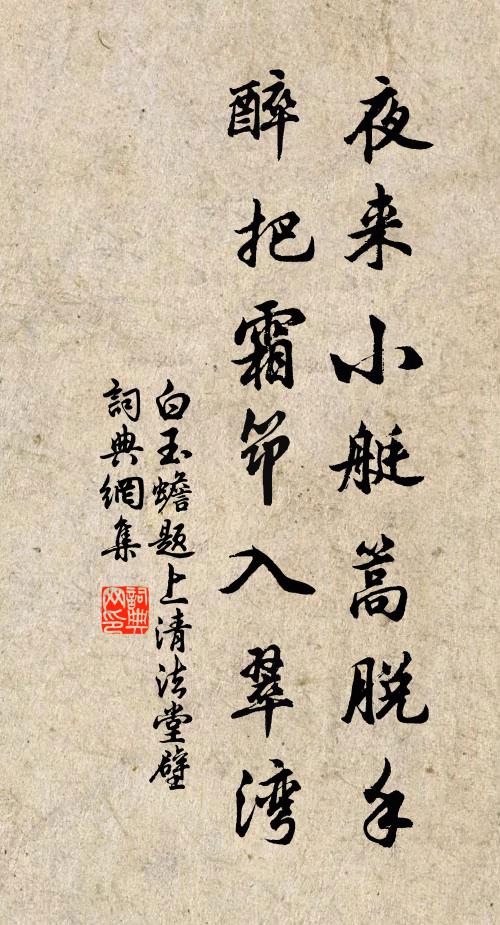 夜来小艇篙脱手
醉把霜筇入翠湾
白玉蟾题上清法堂壁
詞典網集
詞典网印